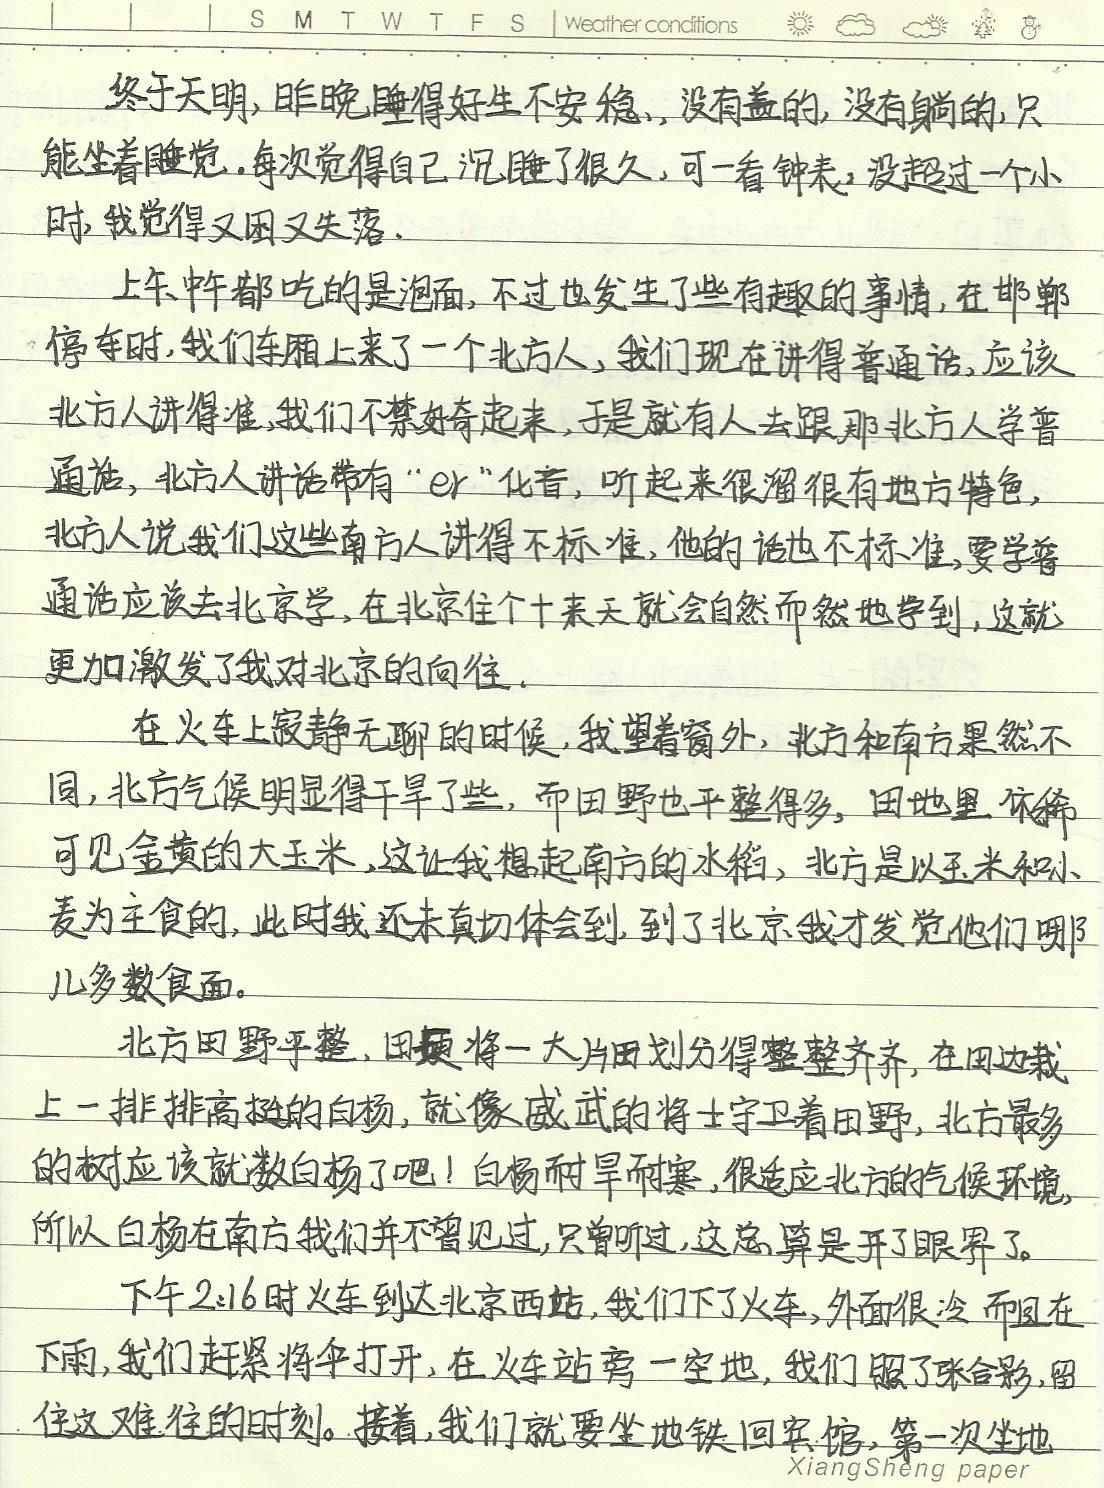 S M T W T F S Weather conditions
终于天明，昨晚睡得好生不安稳，没有盖的，没有躺的，只
能坐着睡觉。每次觉得自己沉睡了很久，可一看钟表，没超过一个小
时，我觉得又困又失落．
上午、中午都吃的是泡面，不过也发生了些有趣的事情，在邯郸
停车时，我们车厢上来了一个北方人，我们现在讲得普通话，应该
北方人讲得准，我们不禁好奇起来，于是就有人去跟那北方人学普
通话，北方人讲话带有“er”化音，听起来很溜很有地方特色，
北方人说我们这些南方人讲得不标准，他的话也不标准，要学普
通话应该去北京学，在北京住个十来天就会自然而然地学到，这就
更加激发了我对北京的向往．
在火车上寂静无聊的时候，我望着窗外，北方和南方果然不
同，北方气候明显得干旱了些，而田野也平整得多，田地里依稀
可见金黄的大玉米，这让我想起南方的水稻，北方是以玉米和小
麦为主食的，此时我还未真切体会到，到了北京我才发觉他们哪
儿多数食面。
北方田野平整，田埂将一大片田划分得整整齐齐，在田边栽
上一排排高挺的白杨，就像威武的将士守卫着田野，北方最多
的树应该就数白杨了吧！白杨耐旱耐寒，很适应北方的气候环境，
所以白杨在南方我们并不曾见过，只曾听过，这总算是开了眼界了。
下午2:16时火车到达北京西站，我们下了火车，外面很冷而且在
下雨，我们赶紧将伞打开，在火车站旁一空地，我们照了张合影，留
住这难往的时刻。接着，我们就要坐地铁回宾馆，第一次坐地
XiangSheng paper